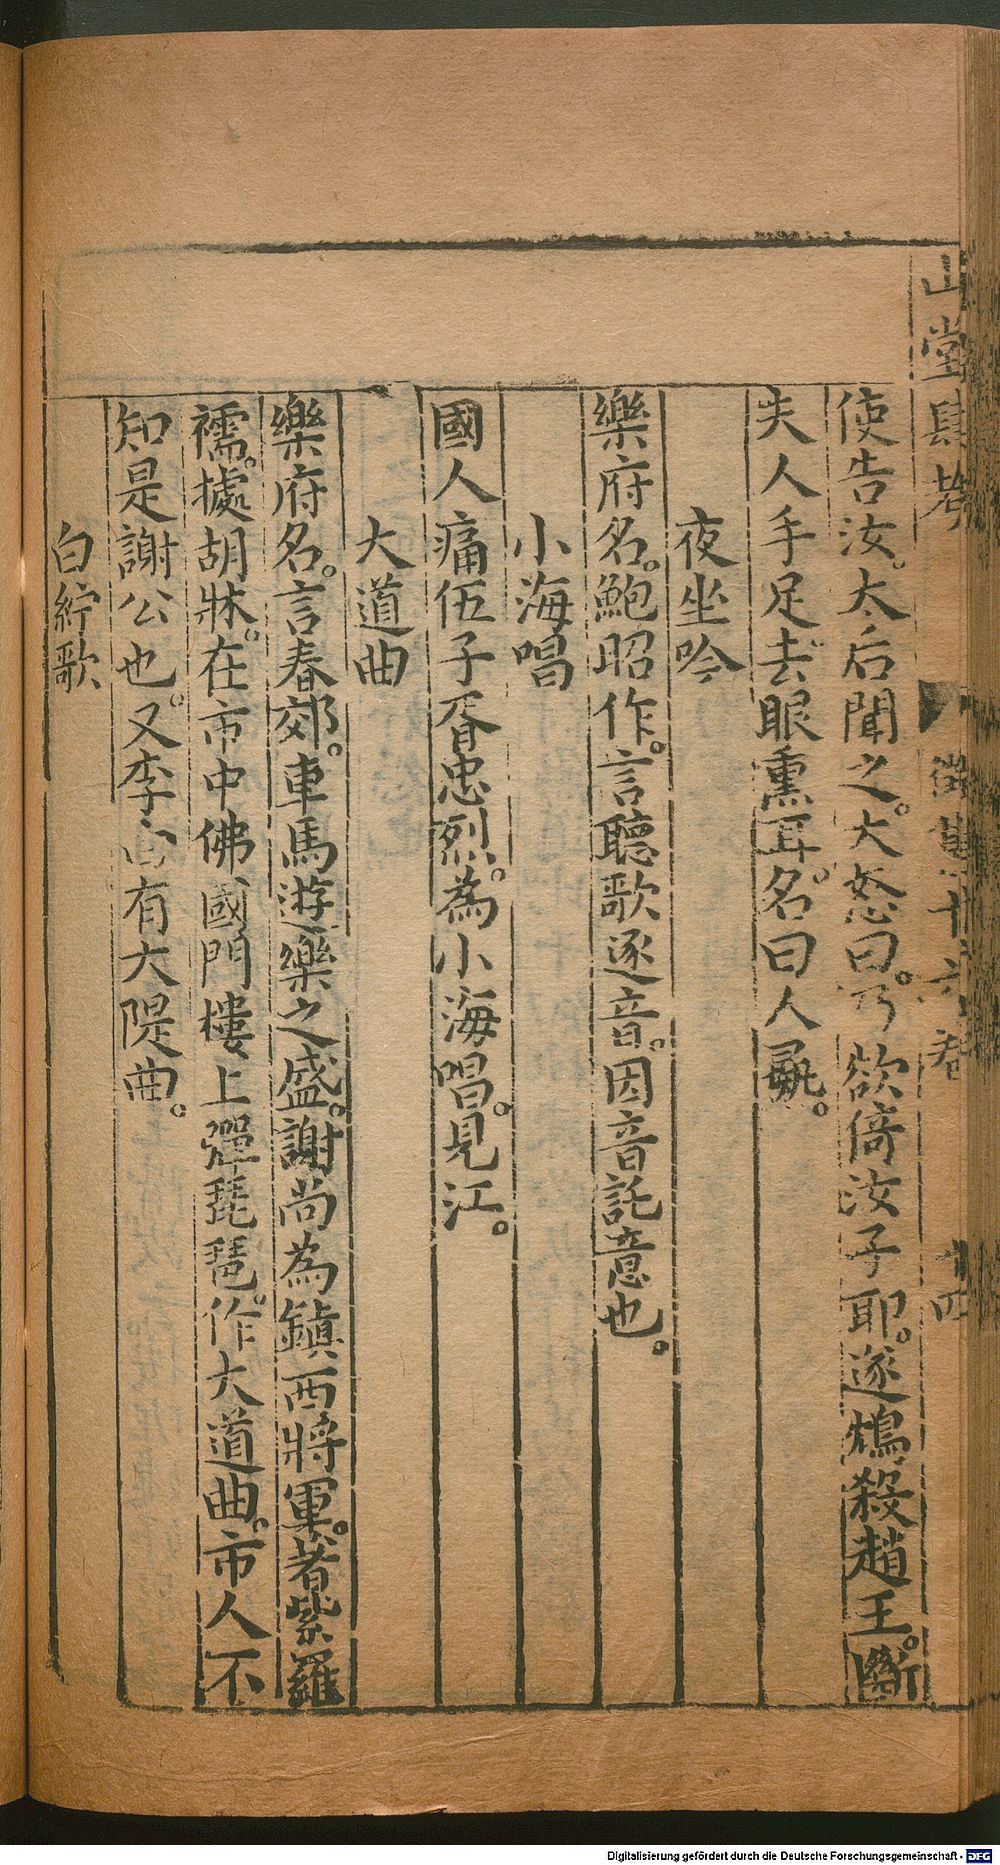 山堂肆考 徵集十六卷 十四
使告汝。太后聞之。大怒曰。乃欲倚汝子耶。遂鴆殺趙王。斷
夫人手足去眼熏耳。名曰人彘。
夜坐吟
樂府名。鮑昭作。言聽歌逐音。因音託意也。
小海唱
國人痛伍子胥忠烈。為小海唱。見江。
大道曲
樂府名。言春郊。車馬遊樂之盛。謝尚為鎮西將軍。著紫羅
襦。據胡牀。在市中佛國門樓上彈琵琶。作大道曲。市人不
知是謝公也。又李白有大隄曲。
白紵歌
Digitalisierung gefördert durch die Deutsche Forschungsgemeinschaft - DFG